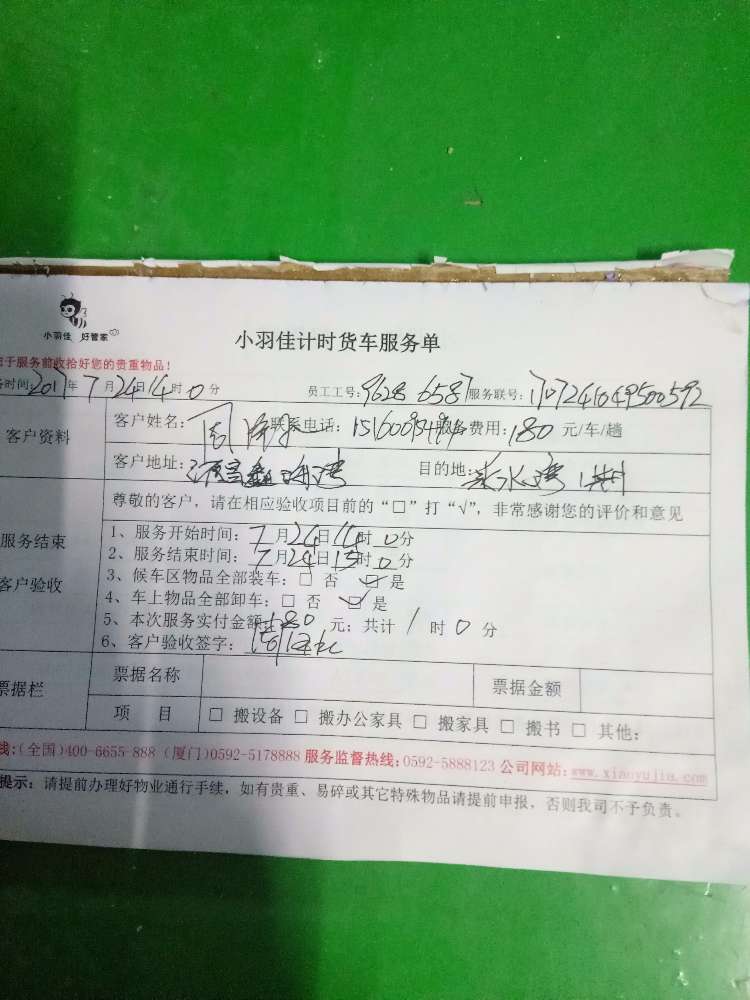 小羽佳 好管家
小羽佳计时货车服务单
于服务前收拾好您的贵重物品!
时间:2017年7月24日14时0分 员工工号:9628 6587 服务联号:1707241049500592
客户资料
客户姓名: 联系电话: 服务费用:180 元/车/趟
客户地址: 目的地:
尊敬的客户,请在相应验收项目前的“□”打“√”,非常感谢您的评价和意见
服务结束
客户验收
1、服务开始时间:7月24日14时0分
2、服务结束时间:7月24日15时0分
3、候车区物品全部装车:□ 否 ☑ 是
4、车上物品全部卸车:□ 否 ☑ 是
5、本次服务实付金额:180 元;共计 1 时 0 分
6、客户验收签字:
票据栏
票据名称 票据金额
项 目 □ 搬设备 □ 搬办公家具 □ 搬家具 □ 搬书 □ 其他:
线:(全国)400-6655-888 (厦门)0592-5178888 服务监督热线:0592-5888123 公司网站:www.xiaoyujia.com
提示:请提前办理好物业通行手续,如有贵重、易碎或其它特殊物品请提前申报,否则我司不予负责。